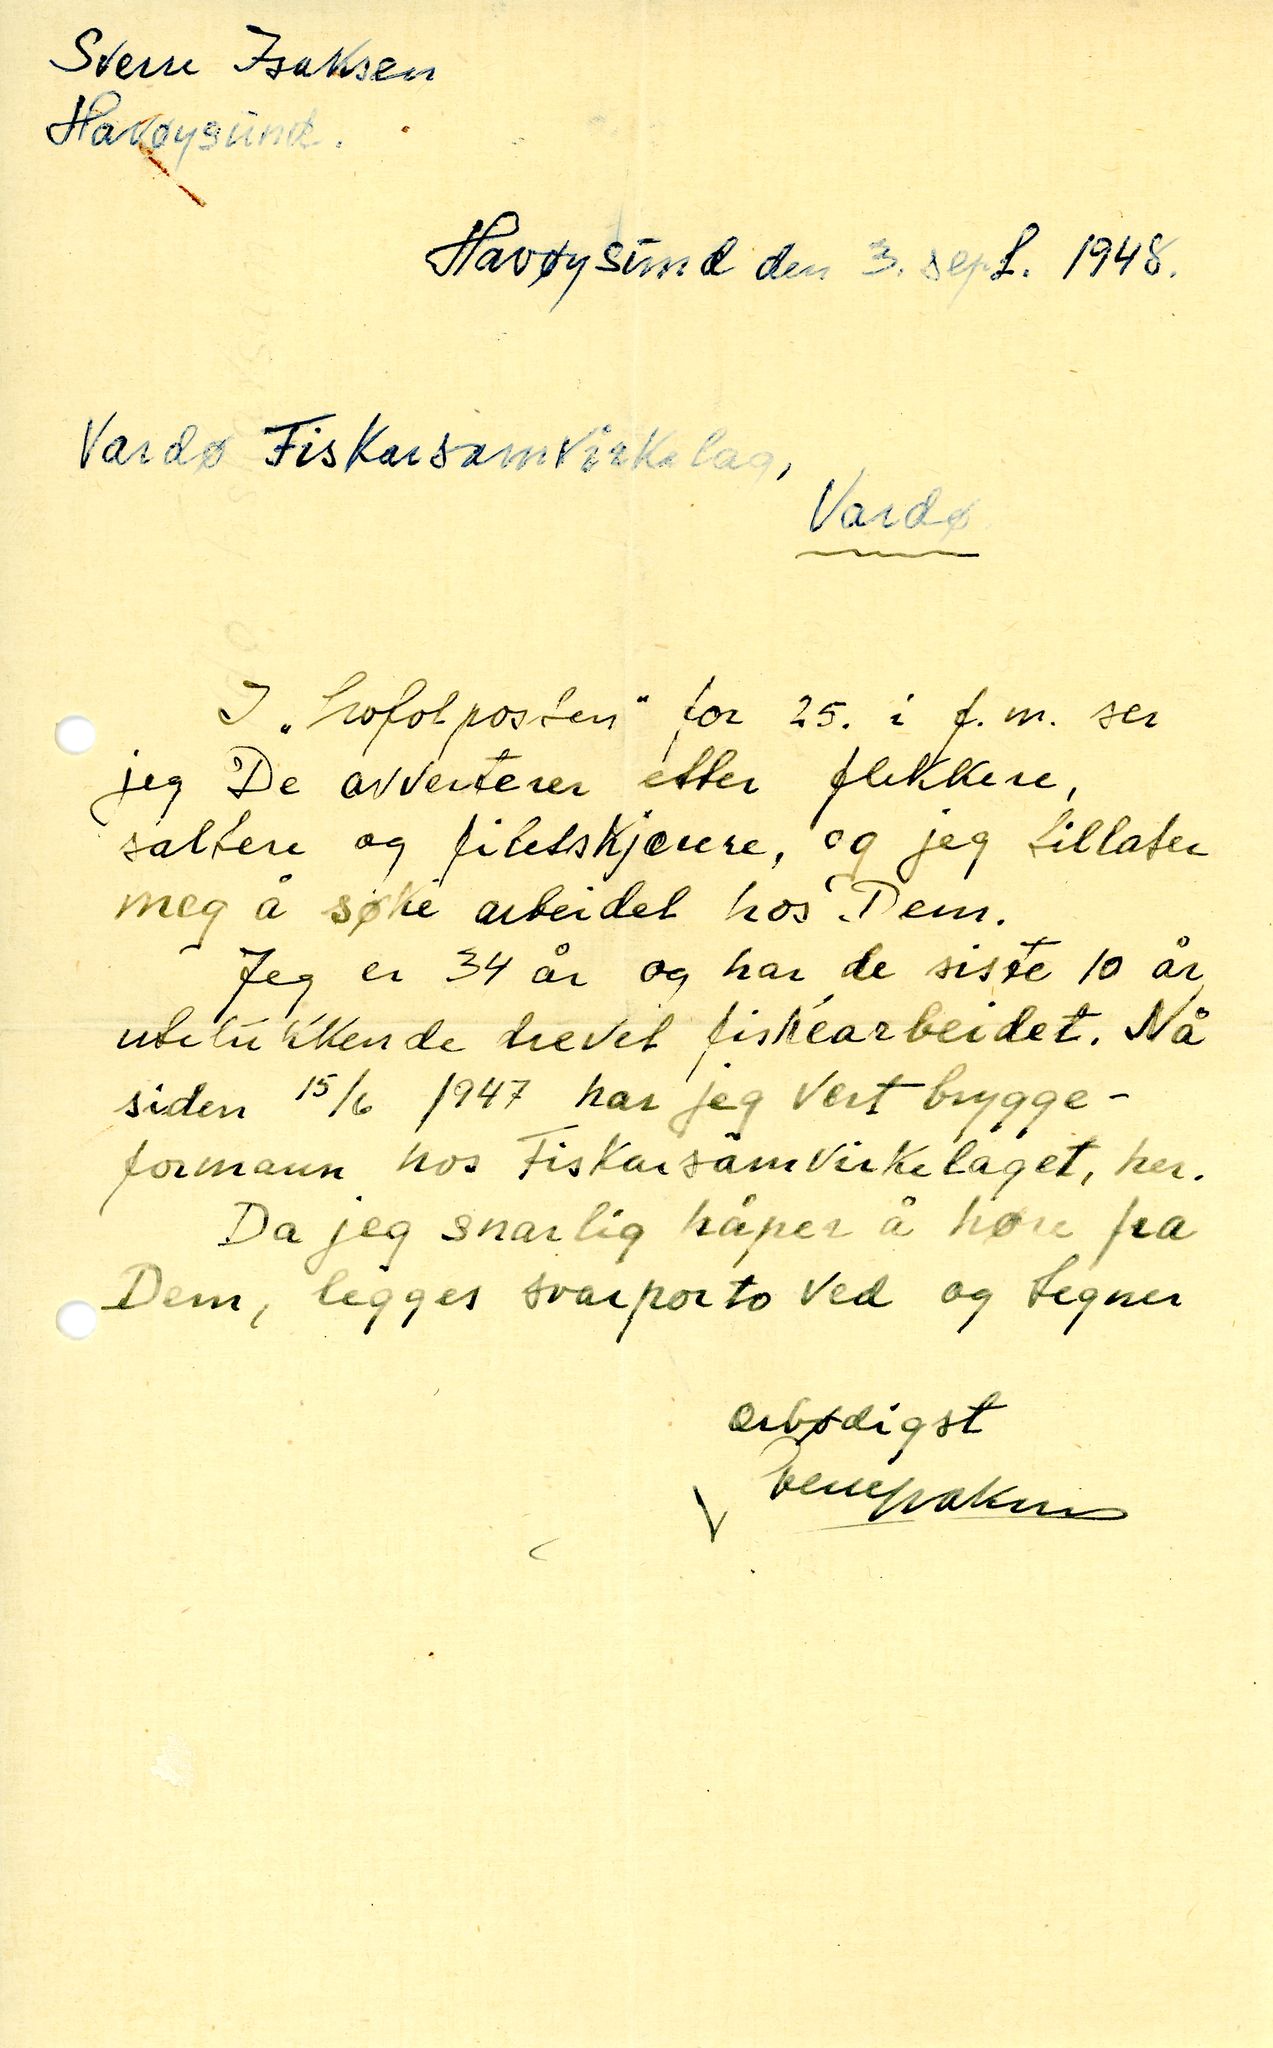 Sverre Isaksen
Havøysund.
Havøysund den 3. sept. 1948.
Vardø Fiskarsamvirkelag,
Vardø
I „Lofotposten" for 25. i f.m. ser
jeg De avverterer etter flekkere,
saltere og filetskjærere, og jeg tillater
meg å søke arbeidet hos Dem.
Jeg er 34 år og har de siste 10 år
utelukkende drevet fiskearbeidet. Nå
siden 15/6 1947 har jeg vert brygge-
formann hos Fiskarsamvirkelaget, her.
Da jeg snarlig håper å høre fra
Dem, legges svarporto ved og tegner
ærbødigst
Sverre Isaksen